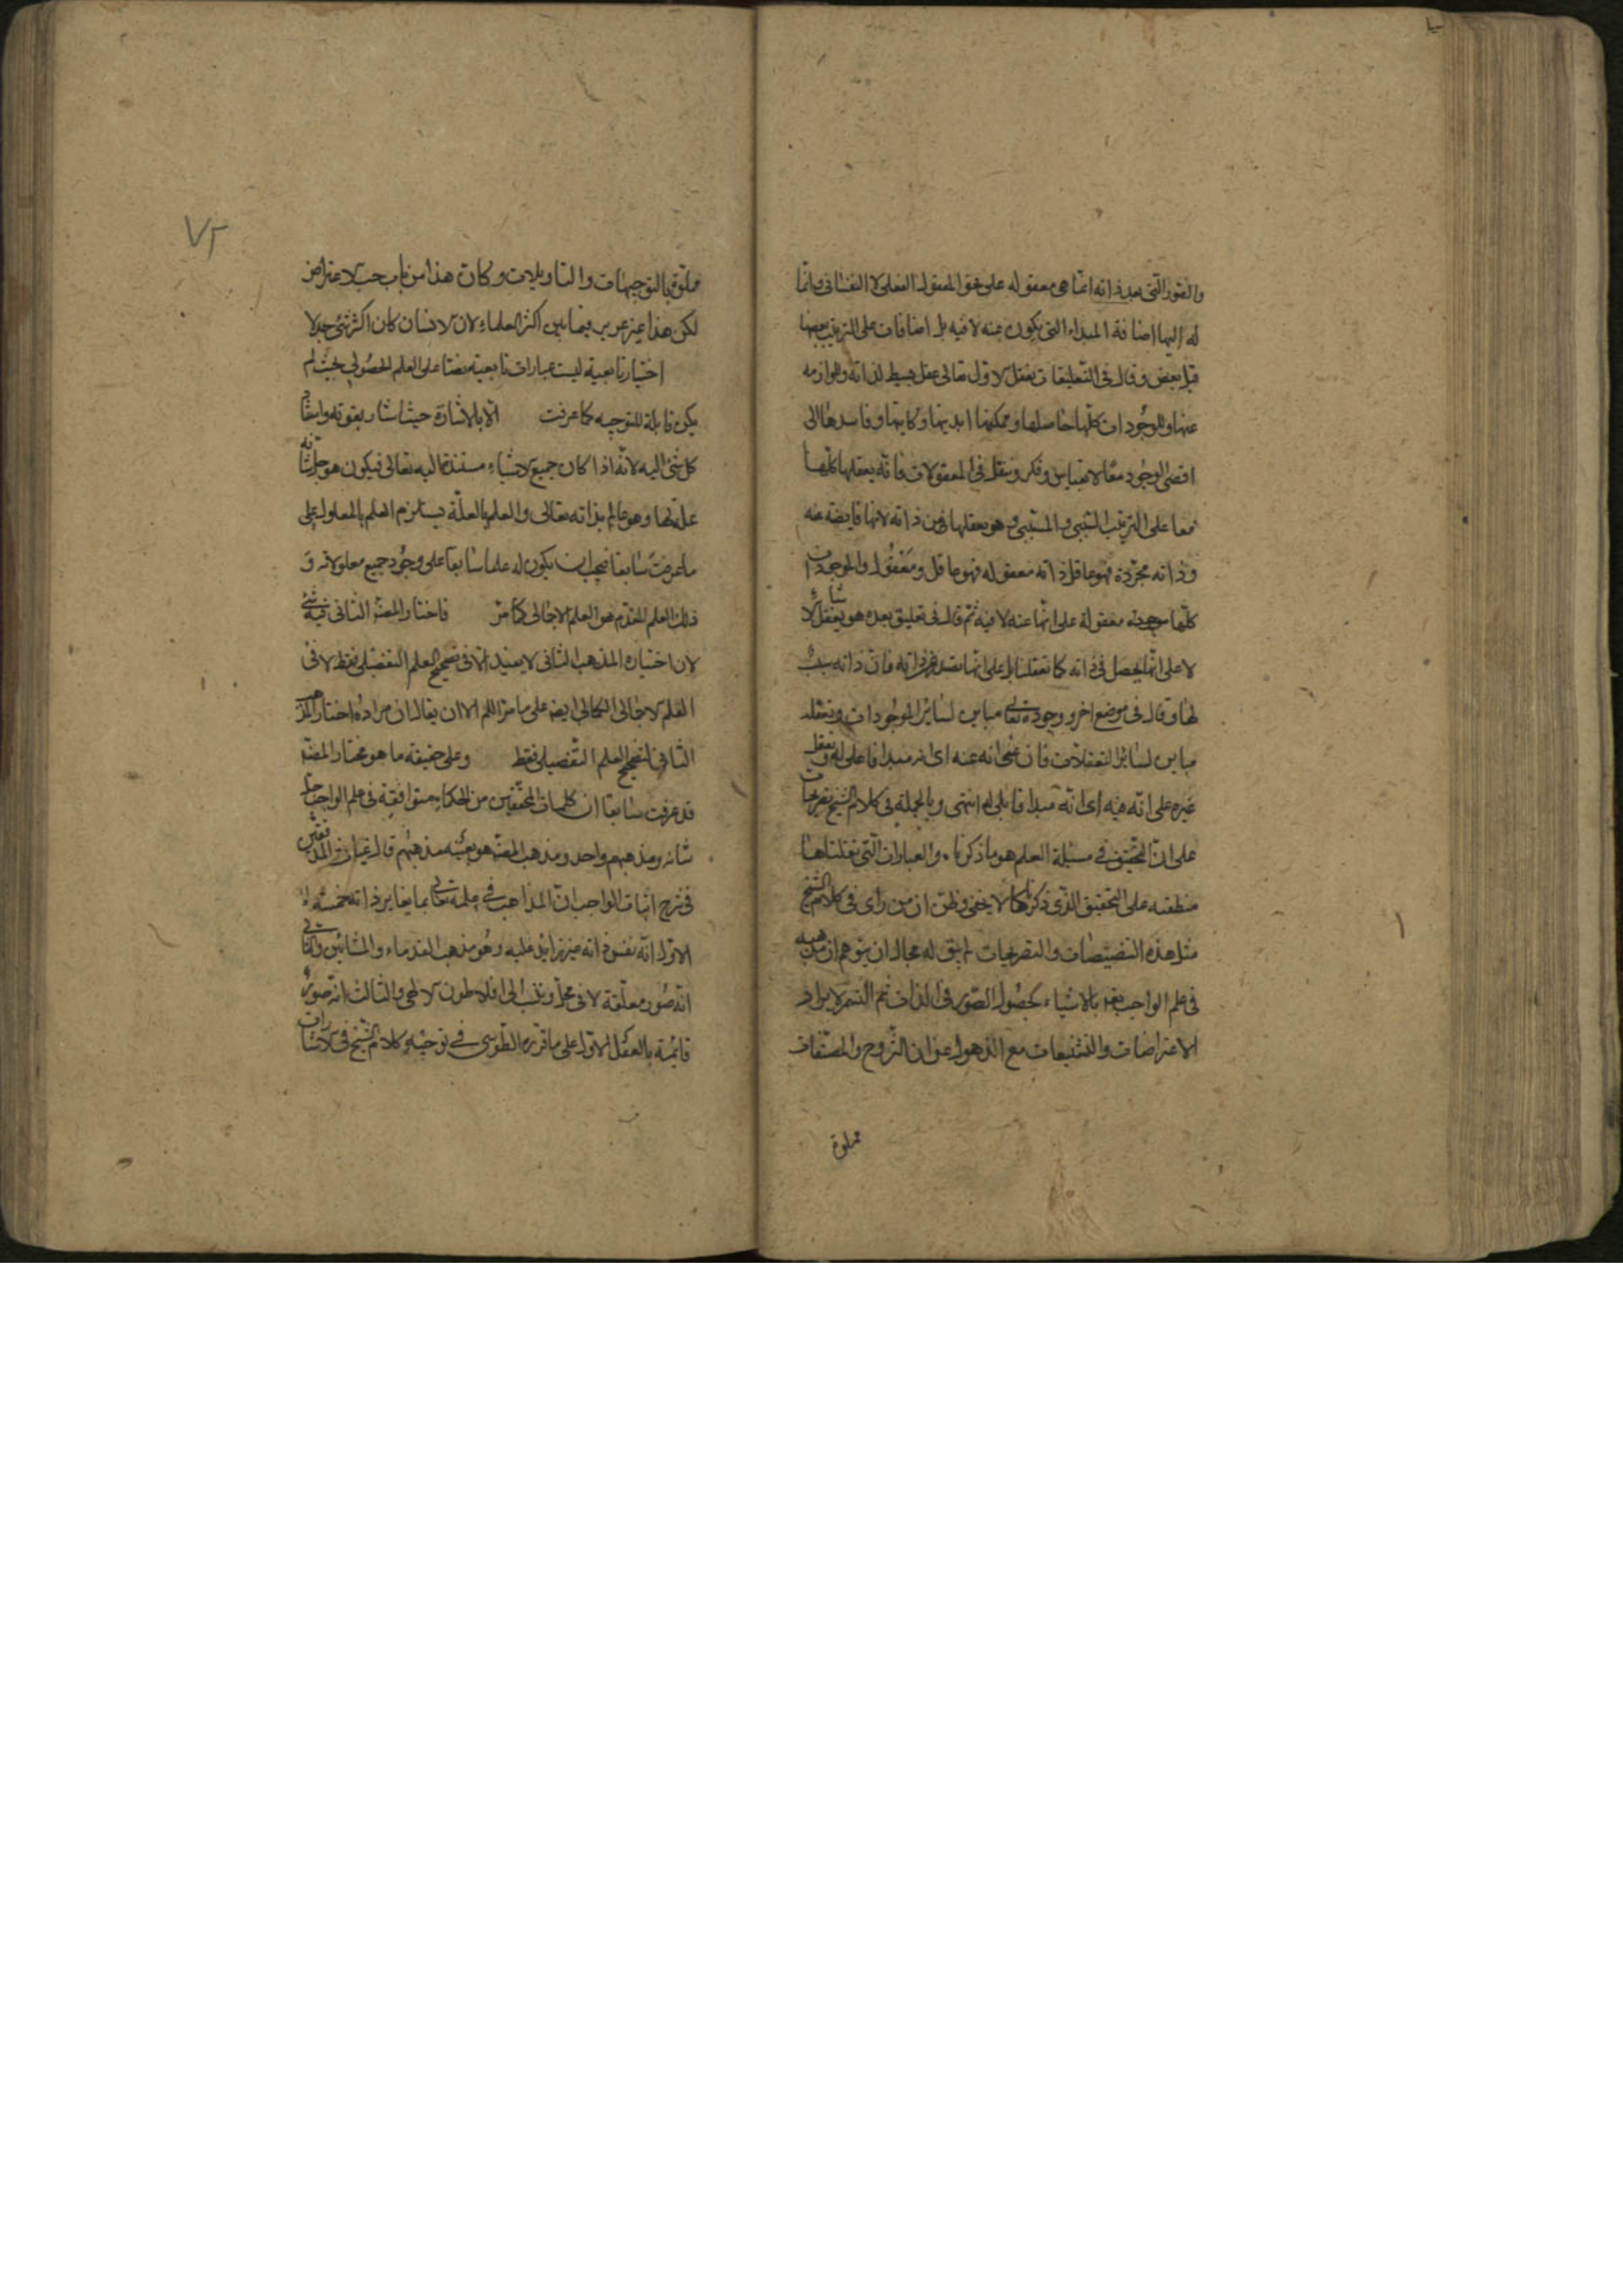 والصور التى بعد ذاته انما هى معقوله على نحو المعقول العقلى لا النفسانى وانما
له اليها اضافة المبداء التى يكون عنه لا فيه بل اضافات على الترتيب بعضها
قبل بعض وقال فى التعليقات تعقل الاول تعالى عقل بسيط لذاته ولوازمه
عنها وللموجودات كلها حاصلها وممكنها ابديها وكاينها وفاسدها الى
اقصى الوجود معا لا بقياس وفكر وتنقل فى المعقولات فانه يعقلها كلها
معا على الترتيب السببى والمسببى وهو يعقلها من ذاته لانها فايضة عنه
وذاته مجردة فهو عاقل ذاته معقوله فهو عاقل ومعقول والموجودات
كلها معقولة على انها عنه لا فيه ثم قال فى تعليق بعده هو يعقل الاشياء
لا على انها يحصل فى ذاته كما نعقلنا بل على انها تصدر عن ذاته فان ذاته سبب
لها وقال فى موضع اخر ووجوده تعالى مباين لسائر الموجودات وتعقله
مباين لسائر التعقلات فان تعقله على انه عنه اى انه مبدا فاعلى له وتعقل
غيره على انه فيه اى انه مبدا قابلى له انتهى وبالجملة فى كلام الشيخ تصريحات
على ان التحقيق فى مسئلة العلم هو ما ذكرنا والعبارات التى نقلناها
منطبقه على التحقيق الذى ذكرناه كما لا يخفى وظنى ان من راى فى كلام الشيخ
مثل هذه التنصيصات والتصريحات لم يبق له مجال ان يتوهم ان مذهبه
فى علم الواجب تعالى بالاشياء بحصول الصور فى الذات ثم التشمر لايراد
الاعتراضات والتشنيعات مع الذهول عن ان الشروح والمصنفات
مملوة
٧٢
مملوة بالتوجيهات والتاويلات وكان هذا من باب حب الاعتراض
لكن هذا غير عزيز فيما بين اكثر العلماء لان الانسان كان اكثر شئ جدلا
اختيار تابعية ليست عبارات تابعيه نصا على العلم الحصولى بحيث لم
يكن قابلة للتوجيه كما عرفت الا بالاشارة حيث اشار بقوله وايضا
كل شئ اليه لانه اذا كان جميع الاشياء مستندة اليه تعالى فيكون هو جل شانه
علة لها وهو عالم بذاته تعالى والعلم بالعلة يستلزم العلم بالمعلول على
ما عرفت سابقا فيجب ان يكون له علما سابقا على وجود جميع معلولاته و
ذلك العلم المقدم هو العلم الاجمالى كما مر فاختار المصنف الثانى فيه شئ
لان اختياره المذهب الثانى لا يفيد الا فى تصحيح العلم التفصيلى فقط لا فى
العلم الاجمالى الكمالى ايضا على ما مر اللهم الا ان يقال ان مراده اختار المذهب
الثانى لتصحيح العلم التفصيلى فقط وعلى حقيقته ما هو مختار المصنف
قد عرفت سابقا ان كلمات المحققين من الحكماء متوافقة فى علم الواجب جل
شانه ومذهبهم واحد ومذهب المصنف هو بعينه مذهبهم قال غياث المدققين
فى شرح اثبات الواجب ان المذاهب فى علمه تعالى بما يغاير ذاته خمسة
الاول انه نفس ذاته غير زايد عليه وهو مذهب القدماء والمشائين والثانى
انه صور معلقة لا فى محل وينسب الى افلاطون الالهى والثالث انه صور
قائمة بالعقل الاول على ما قرره الطوسى فى توجيه كلام الشيخ فى الاشارات